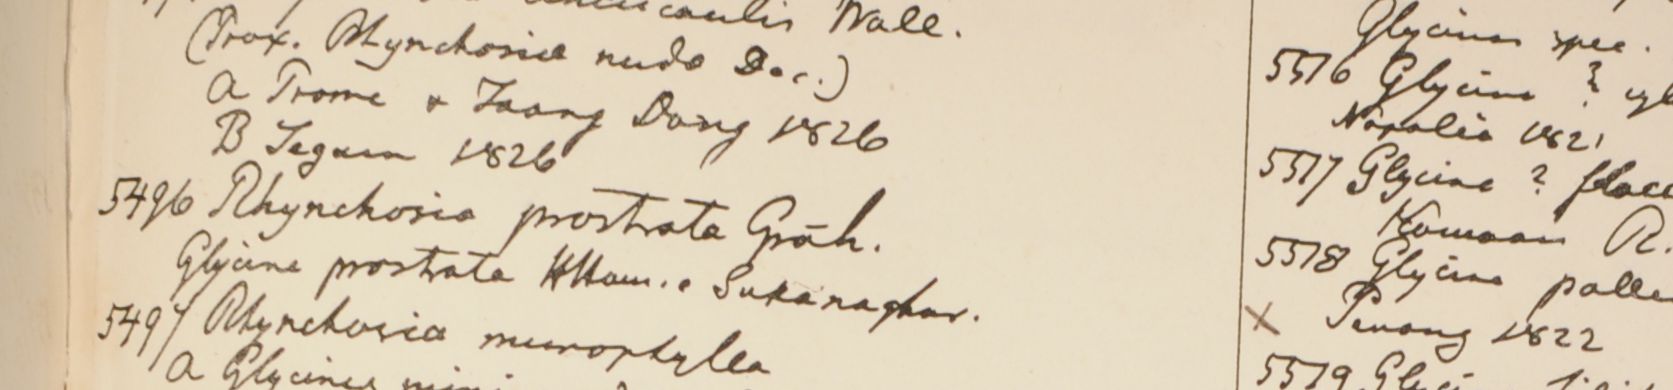 Wall.
(Prox. Rhynchosia nuda Dec.)
a Prome & Taong Dong 1826
B Segaen 1826
5496 Rhynchosia prostrata Grah.
Glycine prostrata HHam. e Sukanaghur.
5497 Rhynchosia microphylla
a Glycine
Glycine spec.
5516 Glycine ?
Napalia 1821
5517 Glycine ? flacc
Kamaon R.
5518 Glycine palle
x Penang 1822
5519 Glyci